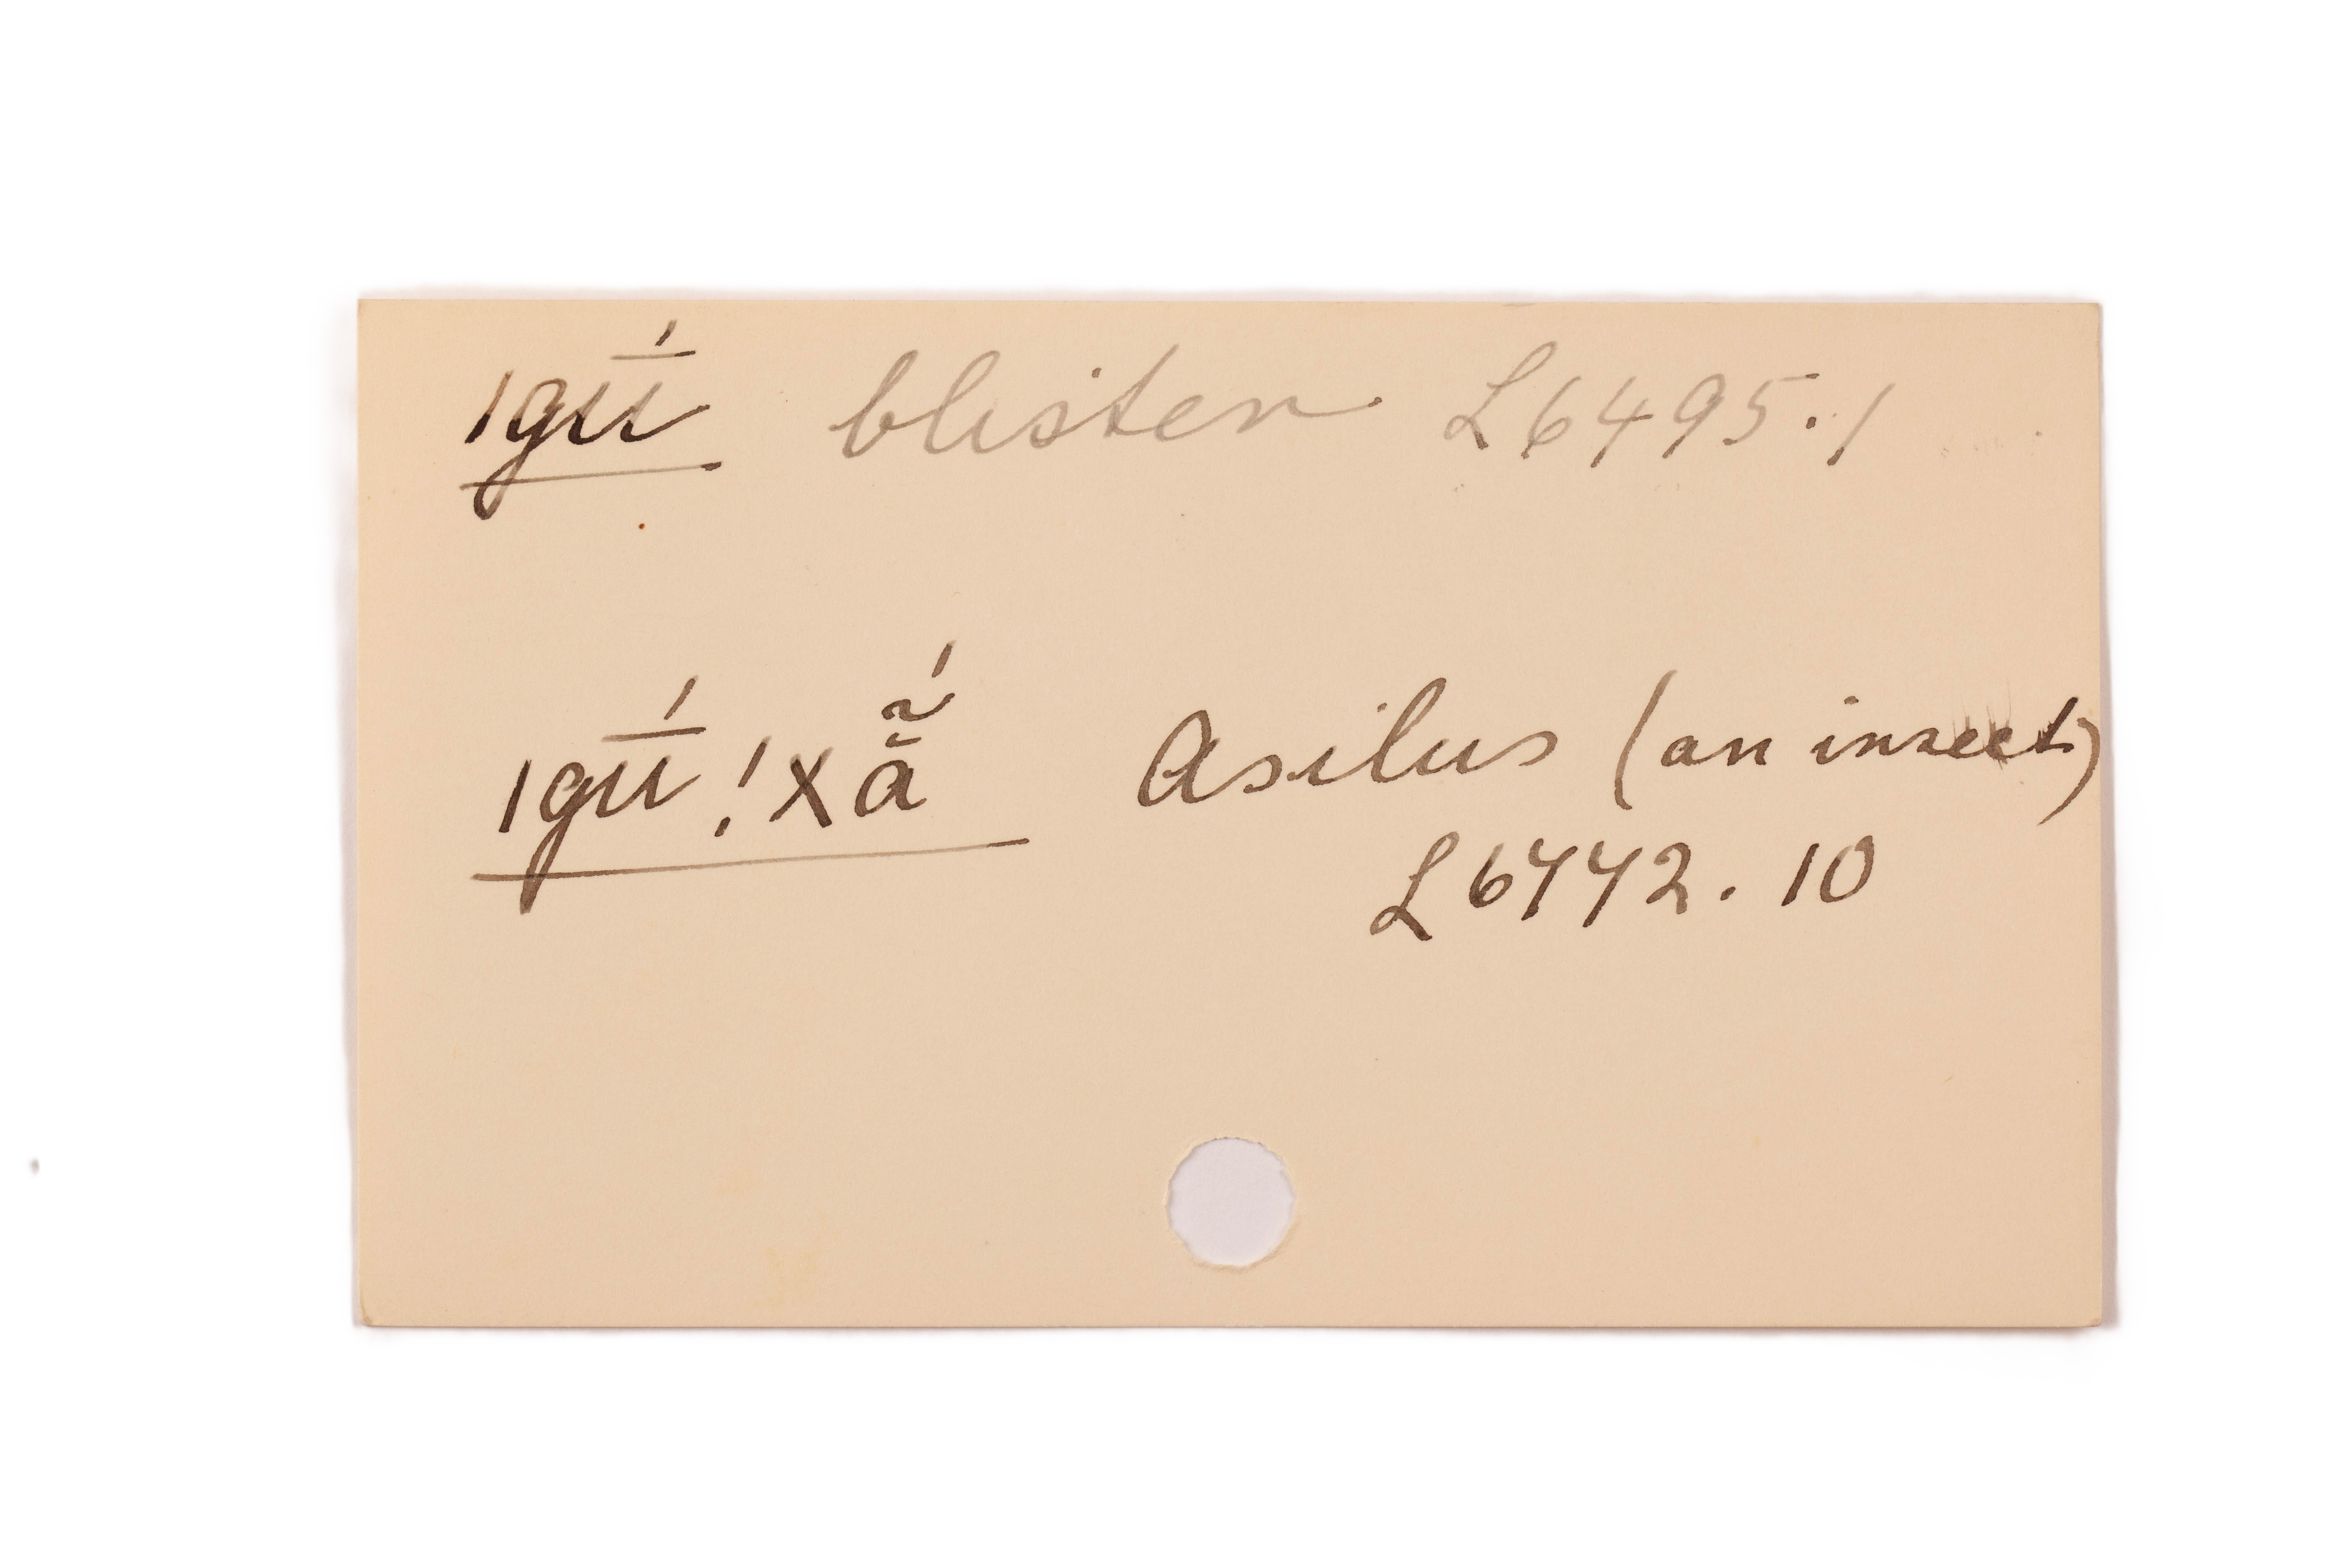 ǀgū́ blister L6495.1
ǀgū́ ! xã̆́ Asilus (an insect)
L6442.10